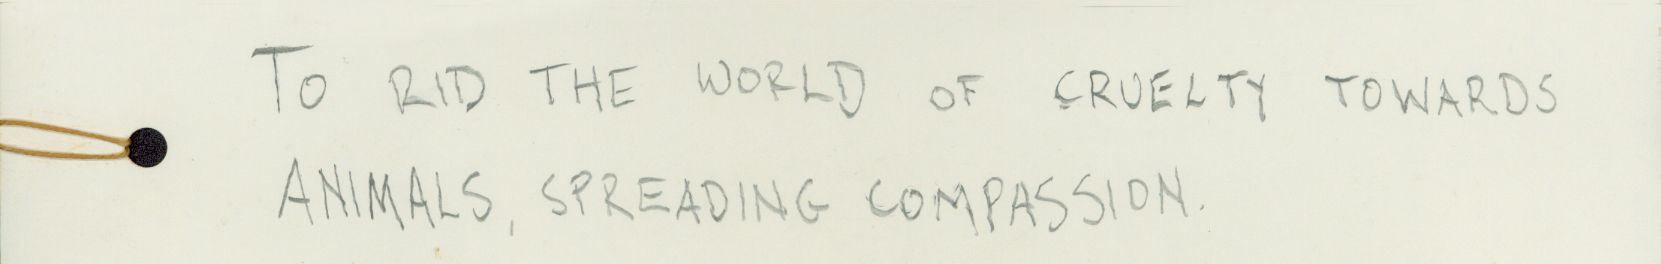 To RID THE WORLD OF CRUELTY TOWARDS
ANIMALS, SPREADING COMPASSION.